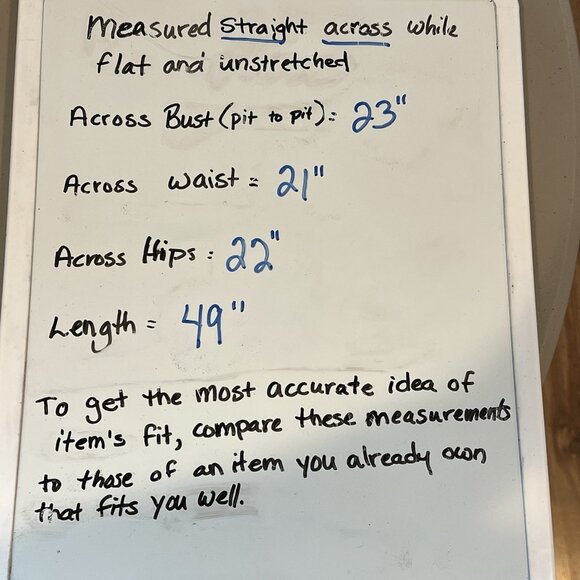 Measured Straight across while
flat and unstretched
Across Bust (pit to pit): 23"
Across waist = 21"
Across Hips: 22"
Length = 49"
To get the most accurate idea of
item's fit, compare these measurements
to those of an item you already own
that fits you well.